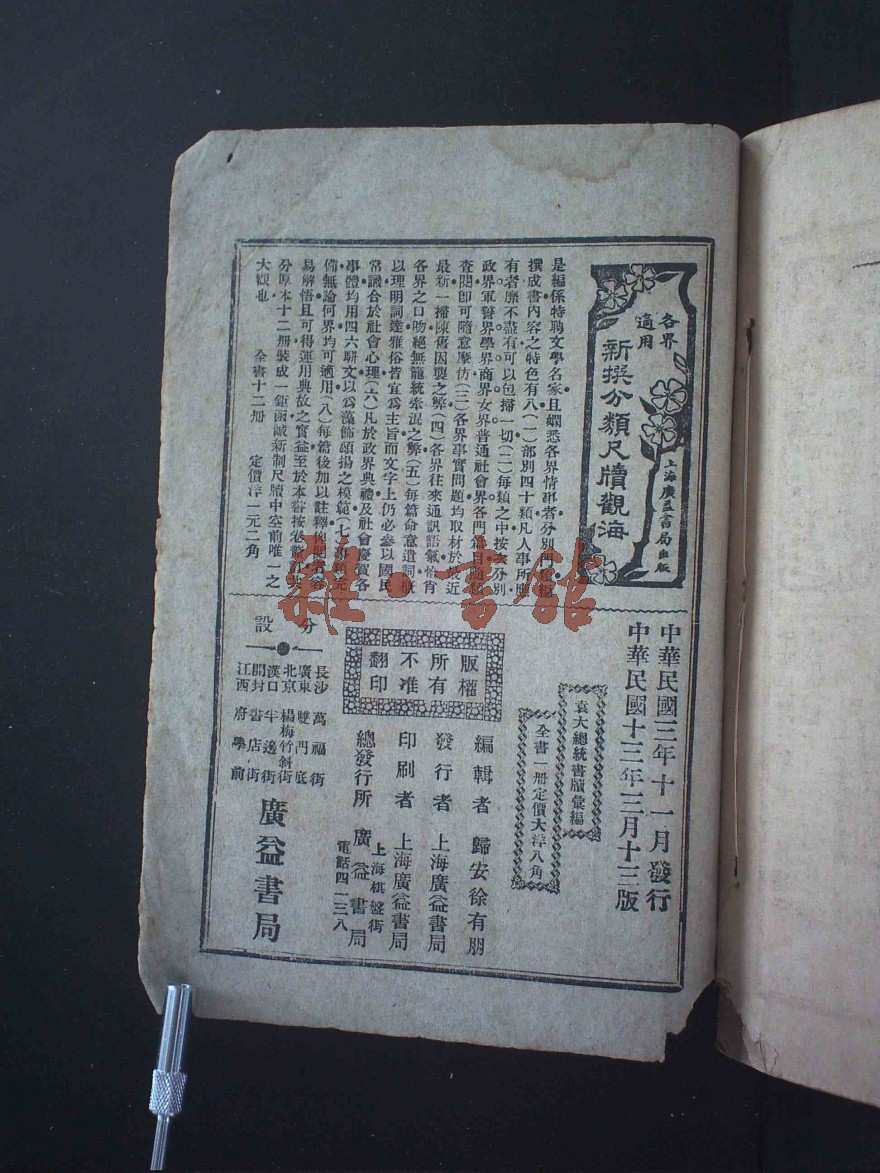 各界
適用
新撰分類尺牘觀海
上海廣益書局出版
是編係特聘文學名家且嫻悉各界情事者分別門
撰成書內容之特色有八(一)部別四十類凡人事所應
有者靡不盡有可以包掃一切(二)每類之中按次分別
政界軍警界學界商界女界普通社會界各門
查閱即可隨意摩仿(三)各界事實問題均取材於最近
最新一掃陳舊因襲之弊(四)各界往來通訊語氣恰肖
各界之口吻絕無籠統牽混之弊(五)每篇命意遣詞概
以理明詞達雅俗皆宜爲主旨而文字上仍必參以國民
常識合於社會心理(六)凡於政界典禮及社會慶賀各
事體均用四六駢文以爲藻飾頌揚之模範(七)完
備無論何界均可適用(八)每篇後加以註釋
易解悟且可得運用典故之實益至於本書按卷
分原本十二册裝成一鉅函誠新制尺牘中空前唯一之
大觀也 全書十二册 定價洋一元二角
雜書館
中華民國三年十一月發行
中華民國十三年三月十三版
袁大總統書牘彙編
全書一册定價大洋八角
版權
所有
不准
翻印
編輯者 歸安徐有朋
發行者 上海廣益書局
印刷者 上海廣益書局
總發行所 上海棋盤街 廣益書局
電話四一三八
分設
長沙 萬福街
廣東 雙門底
北京 楊梅竹斜街
漢口 半邊街
開封 書店街
江西 府學前
廣益書局